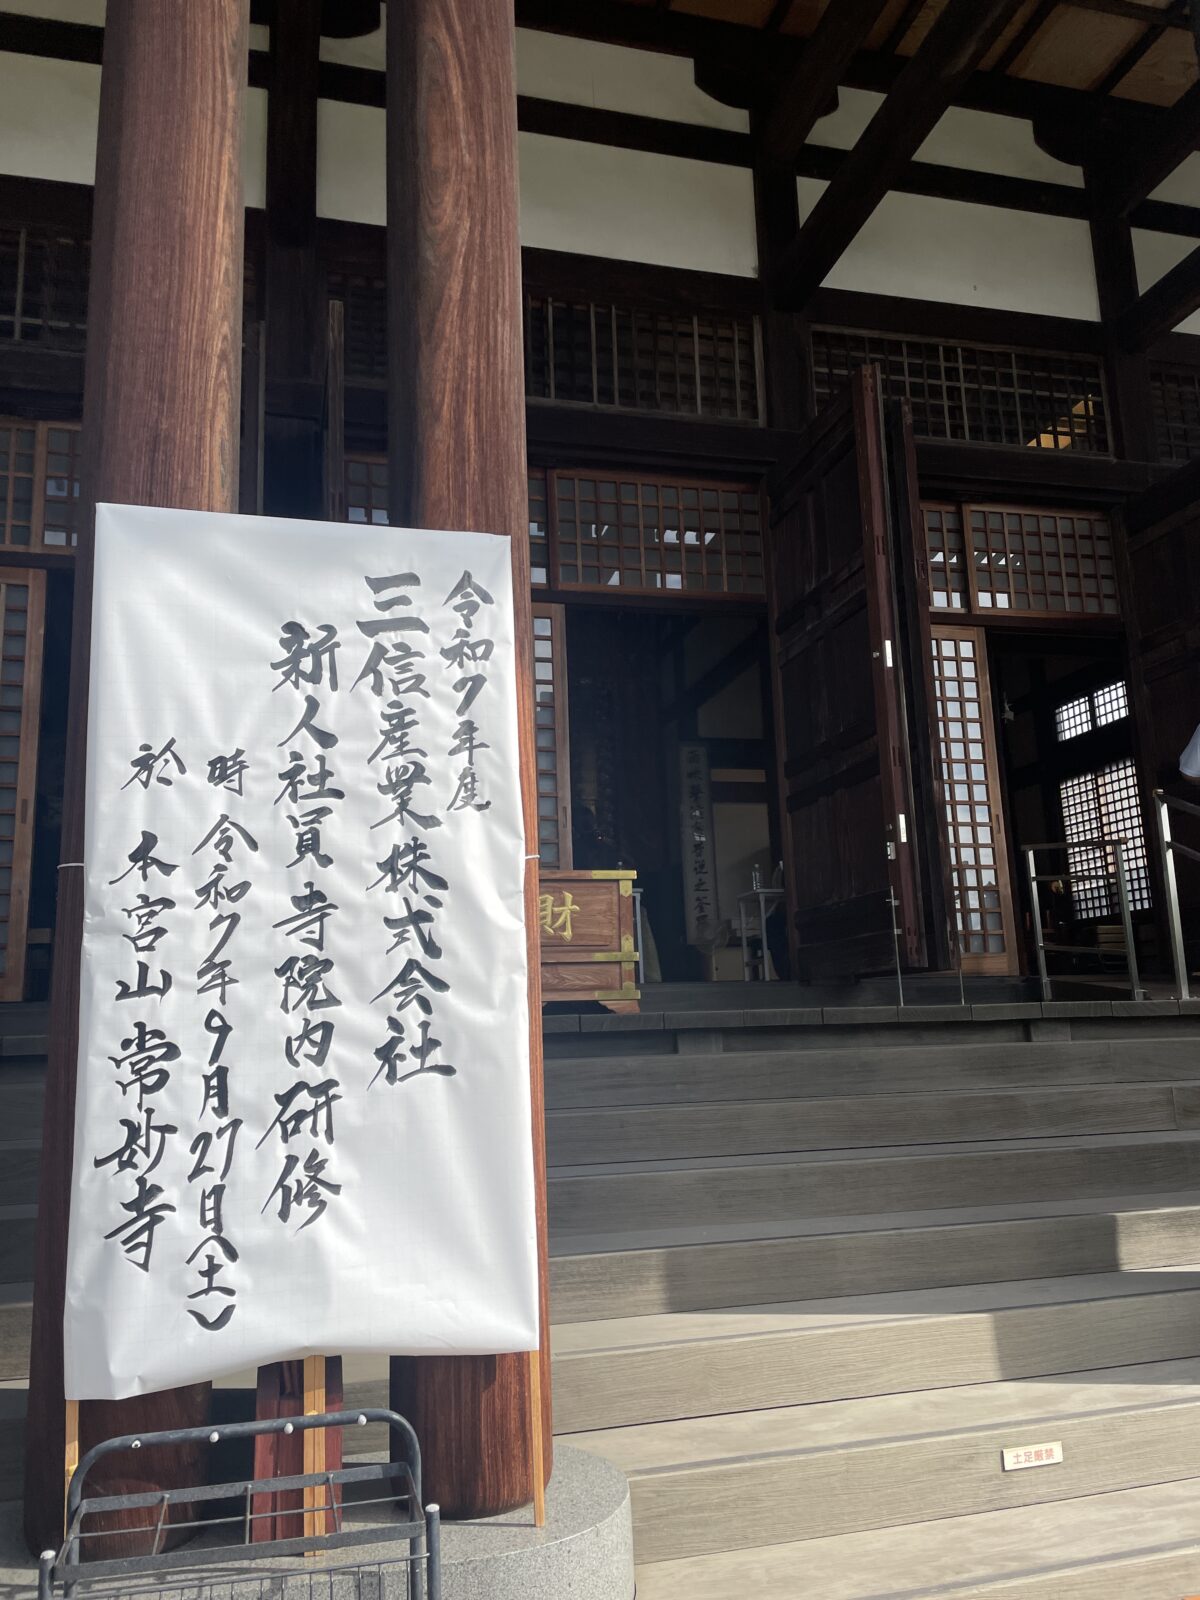 令和7年度
三信産業株式会社
新人社員寺院内研修
時 令和7年9月27日(土)
於 本宮山 常妙寺
財
土足厳禁